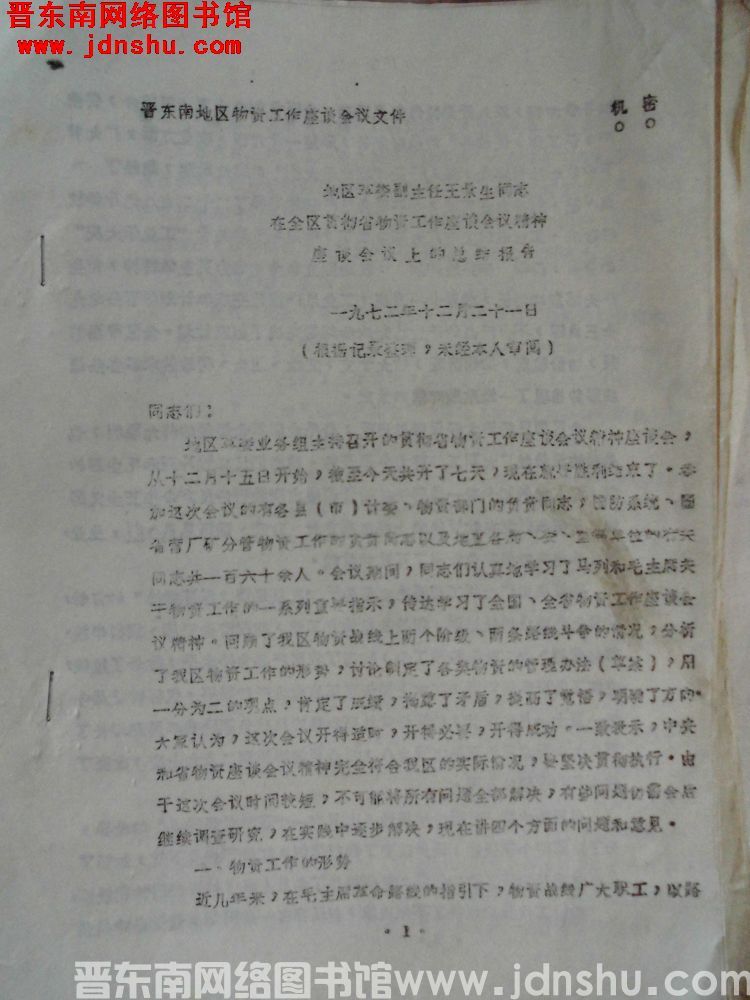 晋东南网络图书馆
www.jdnshu.com
机密。
晋东南地区物资工作座谈会议文件
地区革委副主任王景生同志
在全区贯彻省物资工作座谈会议精神
座谈会议上的总结报告
一九七二年十二月二十一日
(根据记录整理,未经本人审阅)
同志们:
地区革委业务组主持召开的贯彻省物资工作座谈会议精神座谈会,
从十二月十五日开始,截至今天共开了七天,现在就要胜利结束了。参
加这次会议的有各县(市)计委、物资部门的负责同志,国防系统、国
省营厂矿分管物资工作的负责同志以及地直各局、委、直属单位的有关
同志共一百六十余人。会议期间,同志们认真地学习了马列和毛主席关
于物资工作的一系列重要指示,传达学习了全国、全省物资工作座谈会
议精神。回顾了我区物资战线上两个阶级、两条路线斗争的情况,分析
了我区物资工作的形势,讨论制定了各类物资的管理办法(草案),用
一分为二的观点,肯定了成绩,揭露了矛盾,提高了觉悟,明确了方向。
大家认为,这次会议开得适时,开得必要,开得成功。一致表示,中央
和省物资座谈会议精神完全符合我区的实际情况,要坚决贯彻执行。由
于这次会议时间较短,不可能将所有问题全部解决,有些问题仍需会后
继续调查研究,在实践中逐步解决,现在讲四个方面的问题和意见。
一、物资工作的形势
近几年来,在毛主席革命路线的指引下,物资战线广大职工,以路
·1·
晋东南网络图书馆 www.jdnshu.com